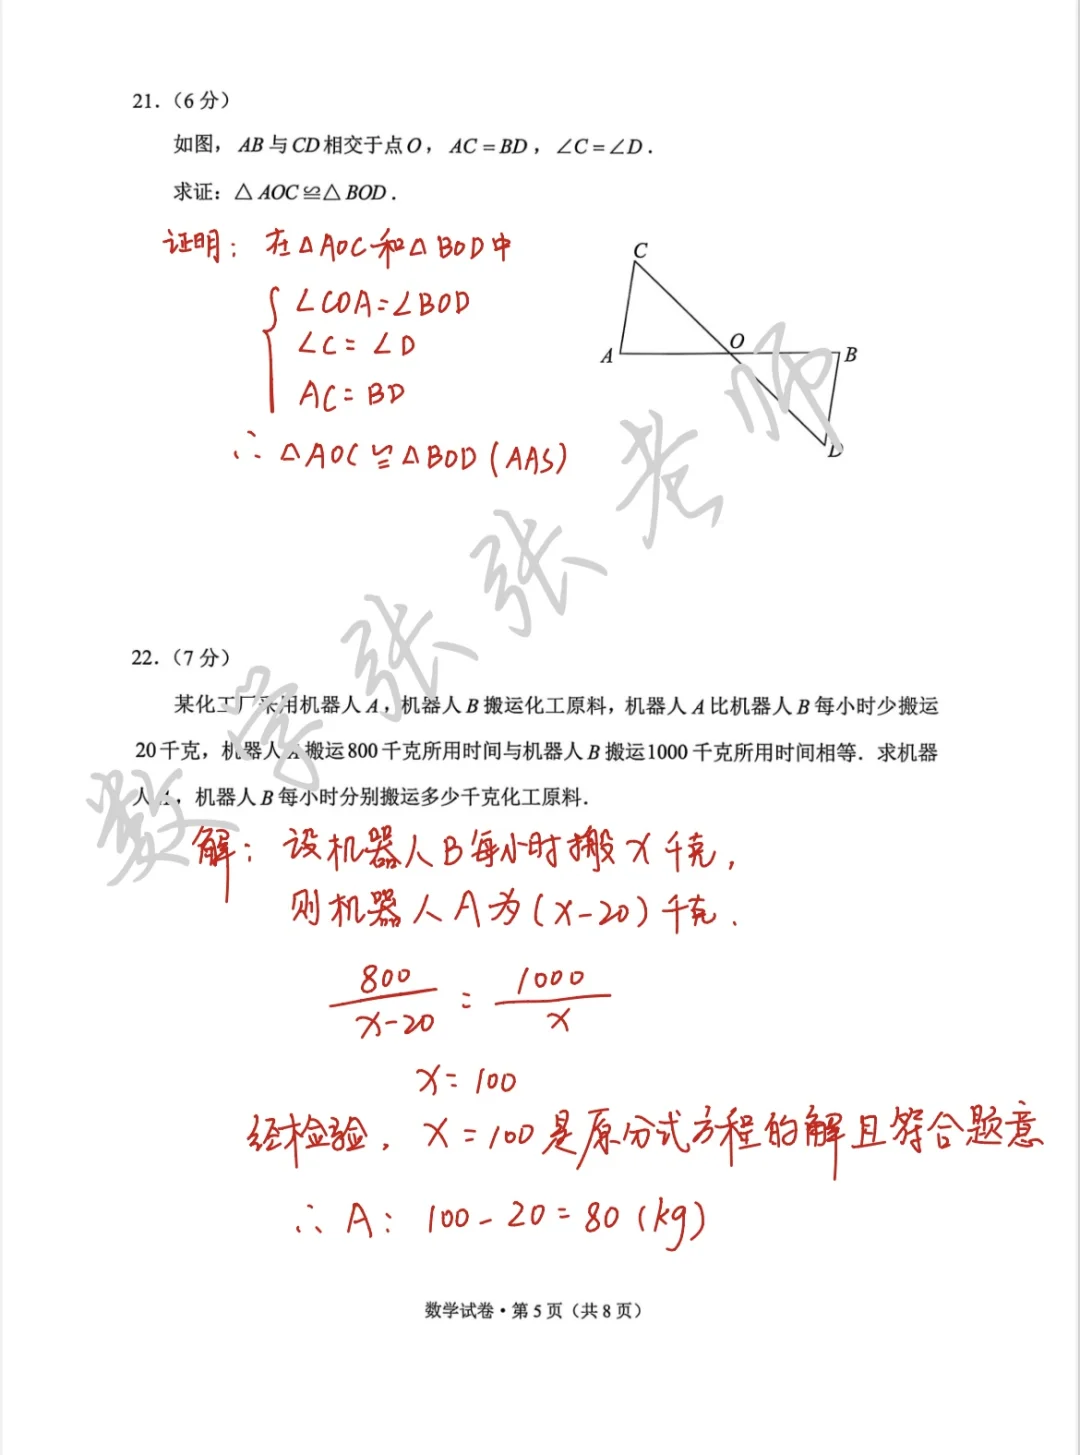 21.（6 分）
如图， AB 与 CD 相交于点 O， AC = BD， ∠C = ∠D．
求证：△ AOC ≌△ BOD．
证明：在△AOC和△BOD中
∠COA=∠BOD
∠C=∠D
AC=BD
∴ △AOC≌△BOD(AAS)
C
A
O
B
D
数学张张老师
22.（7 分）
某化工厂采用机器人 A，机器人 B 搬运化工原料，机器人 A 比机器人 B 每小时少搬运
20 千克，机器人 A 搬运 800 千克所用时间与机器人 B 搬运 1000 千克所用时间相等．求机器
人 A，机器人 B 每小时分别搬运多少千克化工原料．
解：设机器人B每小时搬x千克，
则机器人A为(x-20)千克．
800/(x-20) = 1000/x
x=100
经检验，x=100是原分式方程的解且符合题意
∴ A: 100-20=80(kg)
数学试卷·第 5 页（共 8 页）